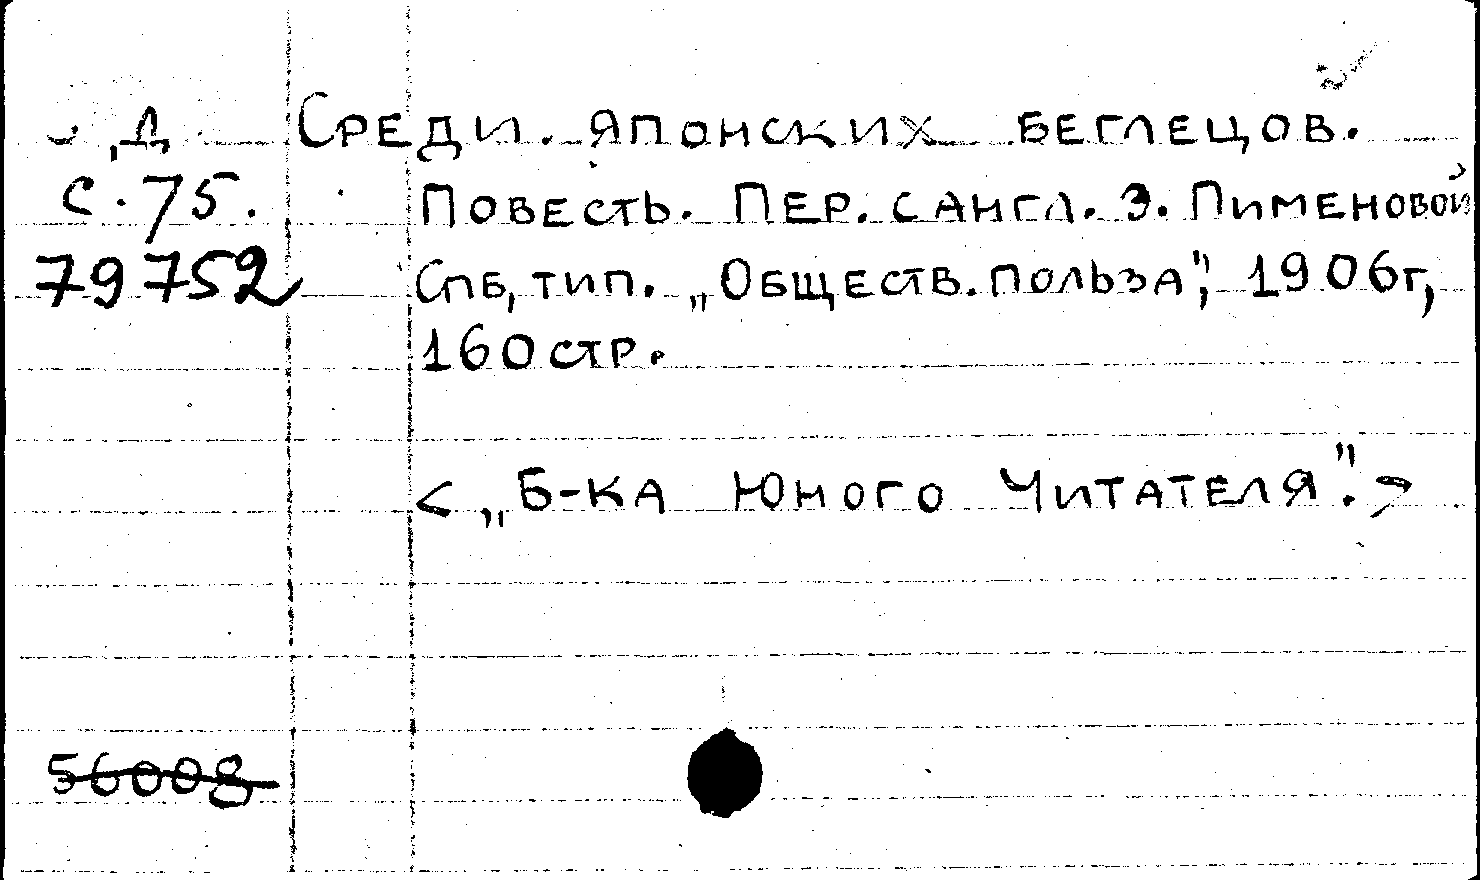 Д Среди японских беглецов.
С.75. Повесть. Пер. с англ. Э. Пименовой
79752 Спб, тип. „Обществ. польза", 1906г,
160 стр.
<„Б-ка Юного Читателя".>
56008